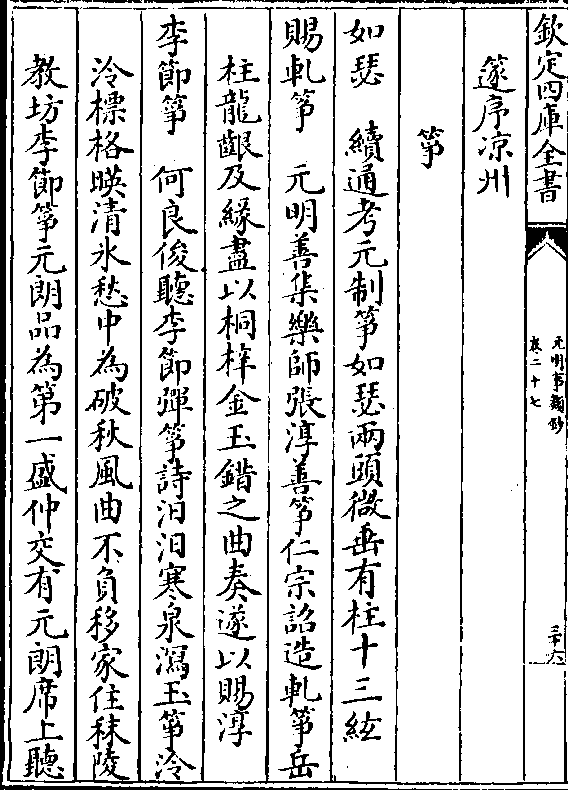 欽定四庫全書
元明事類鈔
卷二十七
三十六
篴序涼州
箏
如瑟　續通考元制箏如瑟兩頭微垂有柱十三絃
賜軋箏　元明善集樂師張淳善箏仁宗詔造軋箏岳
柱龍齦及緣盡以桐梓金玉錯之曲奏遂以賜淳
李節箏　何良俊聽李節彈箏詩汩汩寒泉瀉玉箏泠
泠標格暎清氷愁中為破秋風曲不負移家住秣陵
教坊李節箏元朗品為第一盛仲交有元朗席上聽